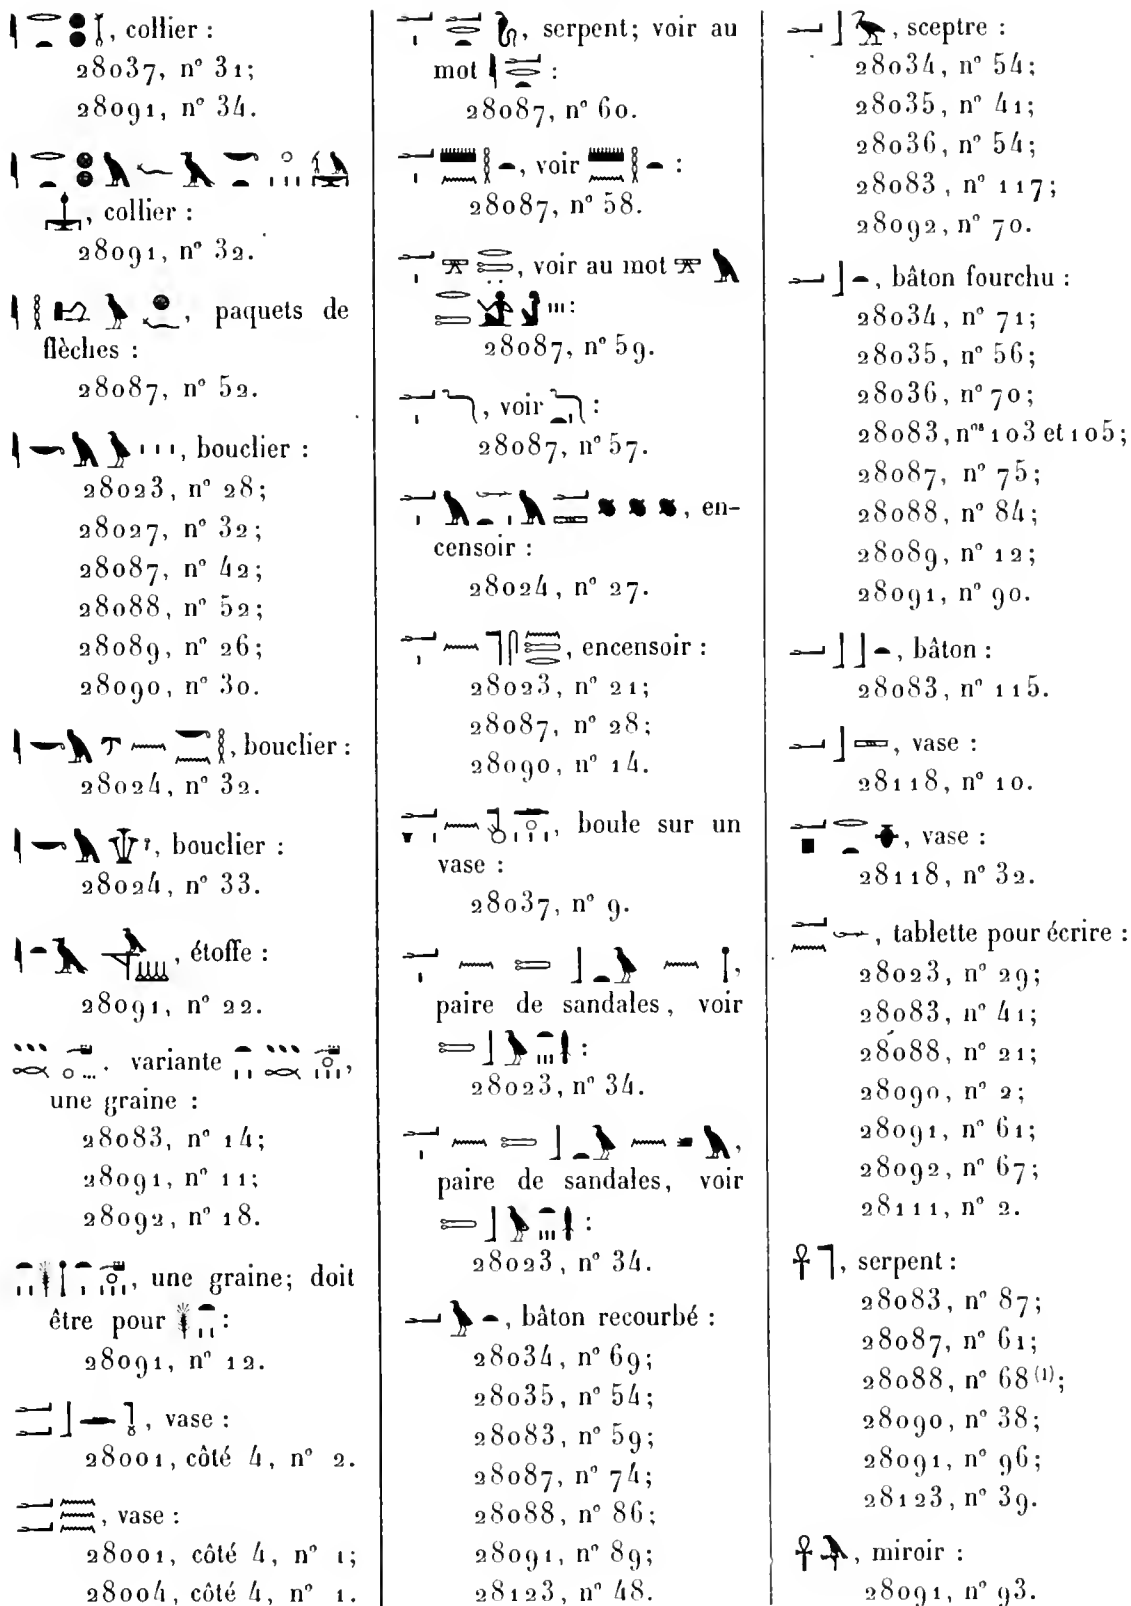 , collier :
28037, n° 31;
28091, n° 34.
, collier :
28091, n° 32.
, paquets de
flèches :
28087, n° 52.
, bouclier :
28023, n° 28;
28027, n° 32;
28087, n° 42;
28088, n° 52;
28089, n° 26;
28090, n° 30.
, bouclier :
28024, n° 32.
, bouclier :
28024, n° 33.
, étoffe :
28091, n° 22.
. variante ,
une graine :
28083, n° 14;
28091, n° 11;
28092, n° 18.
, une graine; doit
être pour :
28091, n° 12.
, vase :
28001, côté 4, n° 2.
, vase :
28001, côté 4, n° 1;
28004, côté 4, n° 1.
, serpent; voir au
mot :
28087, n° 60.
, voir :
28087, n° 58.
, voir au mot
:
28087, n° 59.
, voir :
28087, n° 57.
, en-
censoir :
28024, n° 27.
, encensoir :
28023, n° 21;
28087, n° 28;
28090, n° 14.
, boule sur un
vase :
28037, n° 9.
,
paire de sandales, voir
:
28023, n° 34.
,
paire de sandales, voir
:
28023, n° 34.
, bâton recourbé :
28034, n° 69;
28035, n° 54;
28083, n° 59;
28087, n° 74;
28088, n° 86;
28091, n° 89;
28123, n° 48.
, sceptre :
28034, n° 54;
28035, n° 41;
28036, n° 54;
28083, n° 117;
28092, n° 70.
, bâton fourchu :
28034, n° 71;
28035, n° 56;
28036, n° 70;
28083, nos 103 et 105;
28087, n° 75;
28088, n° 84;
28089, n° 12;
28091, n° 90.
, bâton :
28083, n° 115.
, vase :
28118, n° 10.
, vase :
28118, n° 32.
, tablette pour écrire :
28023, n° 29;
28083, n° 41;
28088, n° 21;
28090, n° 2;
28091, n° 61;
28092, n° 67;
28111, n° 2.
, serpent :
28083, n° 87;
28087, n° 61;
28088, n° 68 (1);
28090, n° 38;
28091, n° 96;
28123, n° 39.
, miroir :
28091, n° 93.